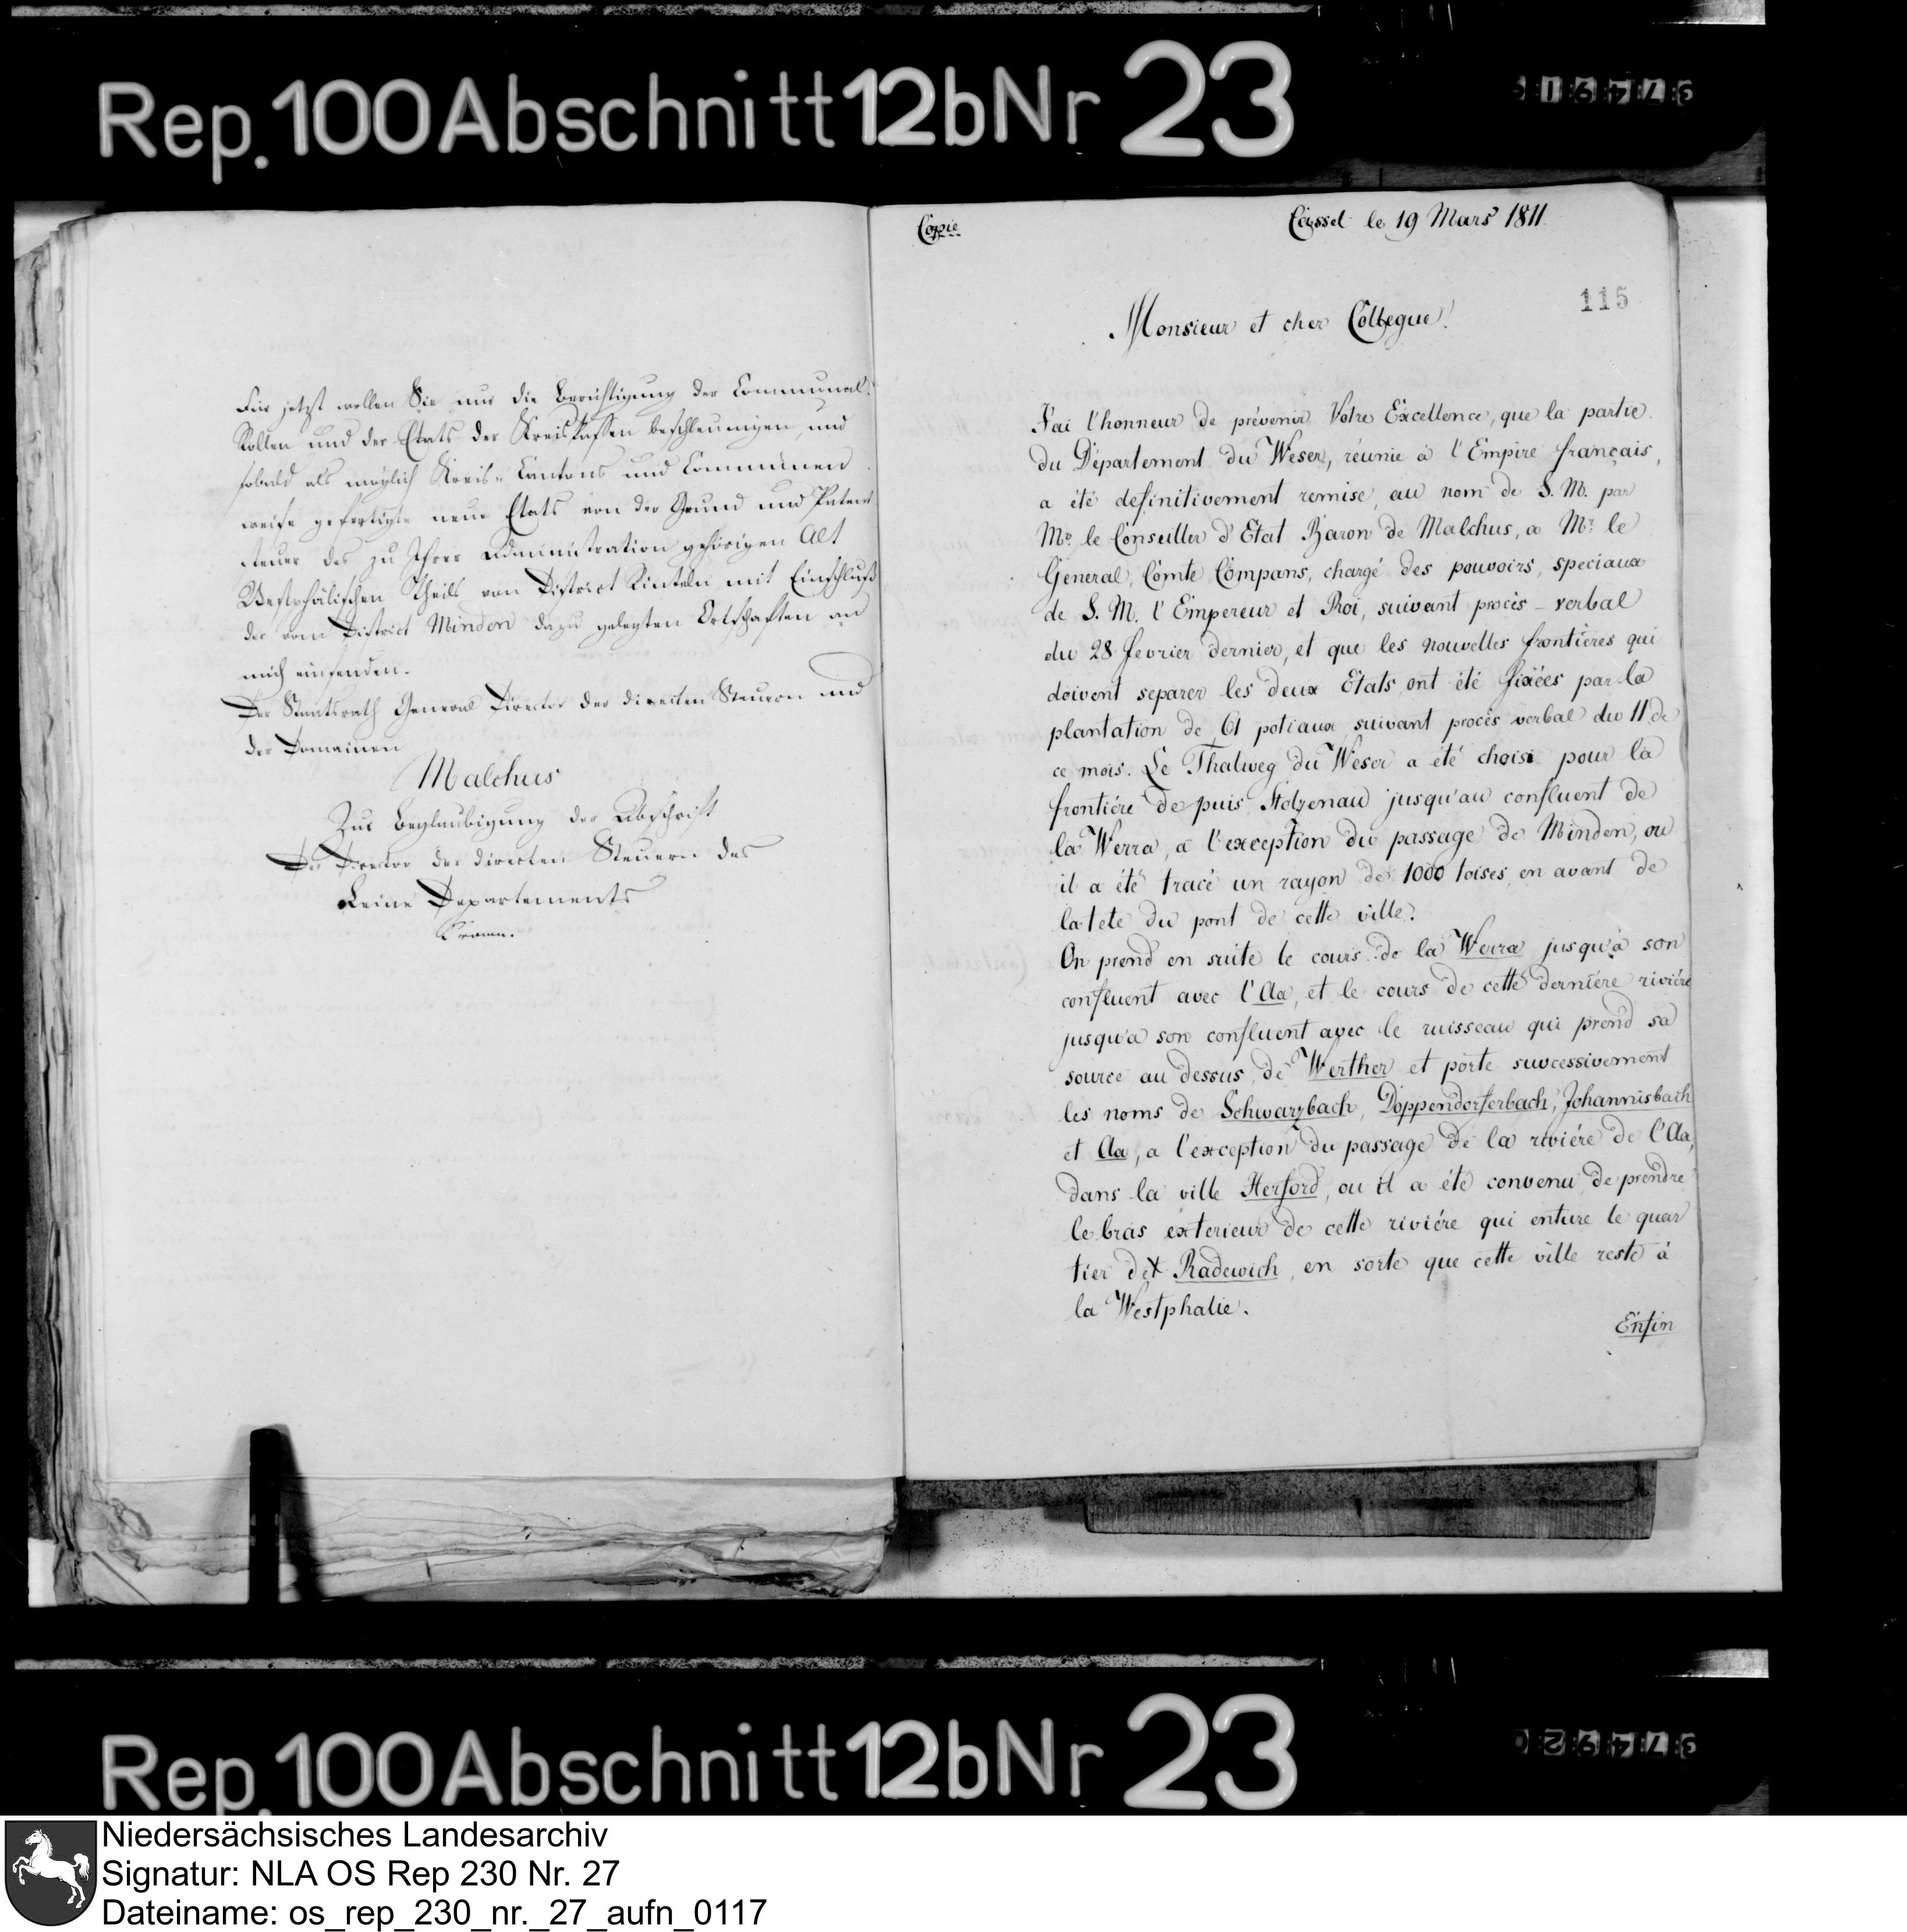 Rep. 100 Abschnitt 12b Nr 23
Für jetzt wollen Sie nur die Berichtigung der Communal-
Rollen und der Etats der Kreiskassen beschleunigen, und
sobald als möglich Kreis- Cantons und Communen
weise gefertigte neue Etats von der Grund und Patent
steuer des zu Ihrer Administration gehörigen Alt
Westphälischen Theils vom District Rinteln mit Einschluß
der vom District Minden dazu gelegten Ortschaften an
mich einsenden.
Der Staatsrath General Director der directen Steuern und
der Domainen
Malchus
Zur Beglaubigung der Abschrift
Der Director der directen Steuern des
Leine Departements
Copie
Cassel le 19 Mars 1811
115
Monsieur et cher Collegue!
J'ai l'honneur de prévenir Votre Excellence, que la partie
du Département du Weser, réunie à l'Empire français,
a été definitivement remise, au nom de S. M. par
Mr. le Conseiller d'Etat Baron de Malchus, a Mr. le
General, Comte Compans, chargé des pouvoirs, speciaux
de S. M. l'Empereur et Roi, suivant procès-verbal
du 28 fevrier dernier, et que les nouvelles frontières qui
doivent separer les deux Etats, ont été fixées par la
plantation de 61 potiaux, suivant procès verbal du 11 de
ce mois. Le Thalweg du Weser a été choisi pour la
frontiére de puis Stolzenau jusqu'au confluent de
la Werra, a l'exception du passage de Minden, ou
il a été tracé un rayon de 1000 toises en avant de
la tete du pont de cette ville.
On prend en suite le cours de la Werra jusqu'à son
confluent avec l'Aa, et le cours de cette derniére riviére
jusqu'a son confluent avec le ruisseau qui prend sa
source au dessus de Werther et porte successivement
les noms de Schwarzbach, Doppendorferbach, Johannisbach
et Aa, a l'exception du passage de la riviére de l'Aa,
dans la ville Herford, ou il a été convenu de prendre
le bras exterieur de cette riviére qui enture le quar
tier det Radewich, en sorte que cette ville reste à
la Westphalie.
Enfin
Rep. 100 Abschnitt 12b Nr 23
Niedersächsisches Landesarchiv
Signatur: NLA OS Rep 230 Nr. 27
Dateiname: os_rep_230_nr._27_aufn_0117